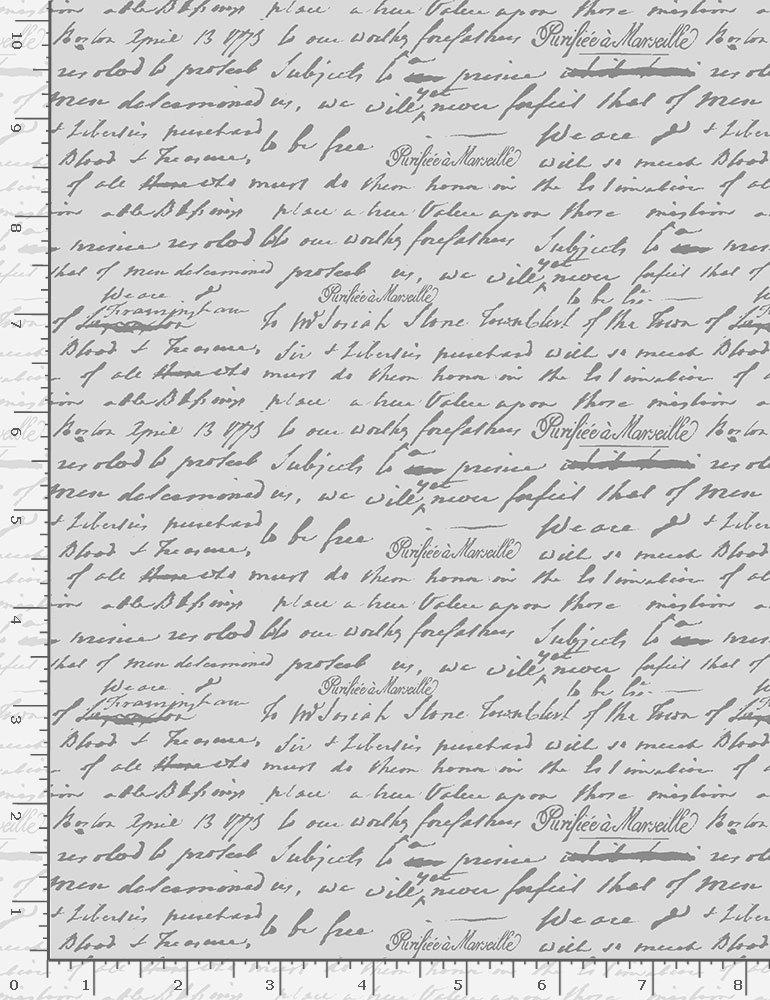 able Blessings place a true Value upon those
10 Boston April 13 1773 to our worthy forefathers Purifiée à Marseille Boston
resolved to protect Subjects to a
men determined us, we will yet never forfeit that of men
9 & Liberties purchased to be free We are &
Blood & Treasure, Purifiée à Marseille with so much Blood
of all must do them honor in the Estimation of all
8 able Blessings place a true Value upon those
resolved to our worthy forefathers Subjects to a
that of men determined protect us, we will yet never forfeit that of
We are & Purifiée à Marseille to be
7 of Framingham To Mr Josiah Stone Town Clerk of the Town of
Blood & Treasure, Sir & Liberties purchased with so much Blood
of all must do them honor in the Estimation of
able Blessings place a true Value upon those
6 Boston April 13 1773 to our worthy forefathers Purifiée à Marseille Boston
resolved to protect Subjects to a
men determined us, we will yet never forfeit that of men
5 & Liberties purchased to be free We are &
Blood & Treasure, Purifiée à Marseille with so much Blood
of all must do them honor in the Estimation of all
4 able Blessings place a true Value upon those
resolved to our worthy forefathers Subjects to a
that of men determined protect us, we will yet never forfeit that of
We are & Purifiée à Marseille to be
3 of Framingham To Mr Josiah Stone Town Clerk of the Town of
Blood & Treasure, Sir & Liberties purchased with so much Blood
of all must do them honor in the Estimation of
able Blessings place a true Value upon those
2 Boston April 13 1773 to our worthy forefathers Purifiée à Marseille Boston
resolved to protect Subjects to a
men determined us, we will yet never forfeit that of men
1 & Liberties purchased to be free We are &
Blood & Treasure, Purifiée à Marseille with so much Blood
0 1 2 3 4 5 6 7 8